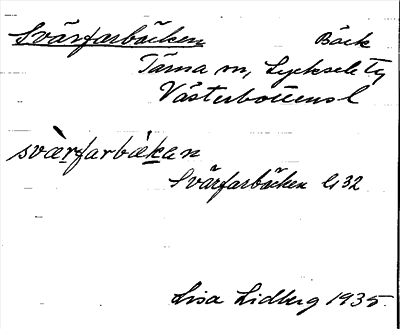 Svärfarbäcken Bäck
Tärna sn, Lycksele Tg
Västerbottens l
svàrfarbà̀ken
Svärfarbäcken G 32
Lisa Lidberg 1935.